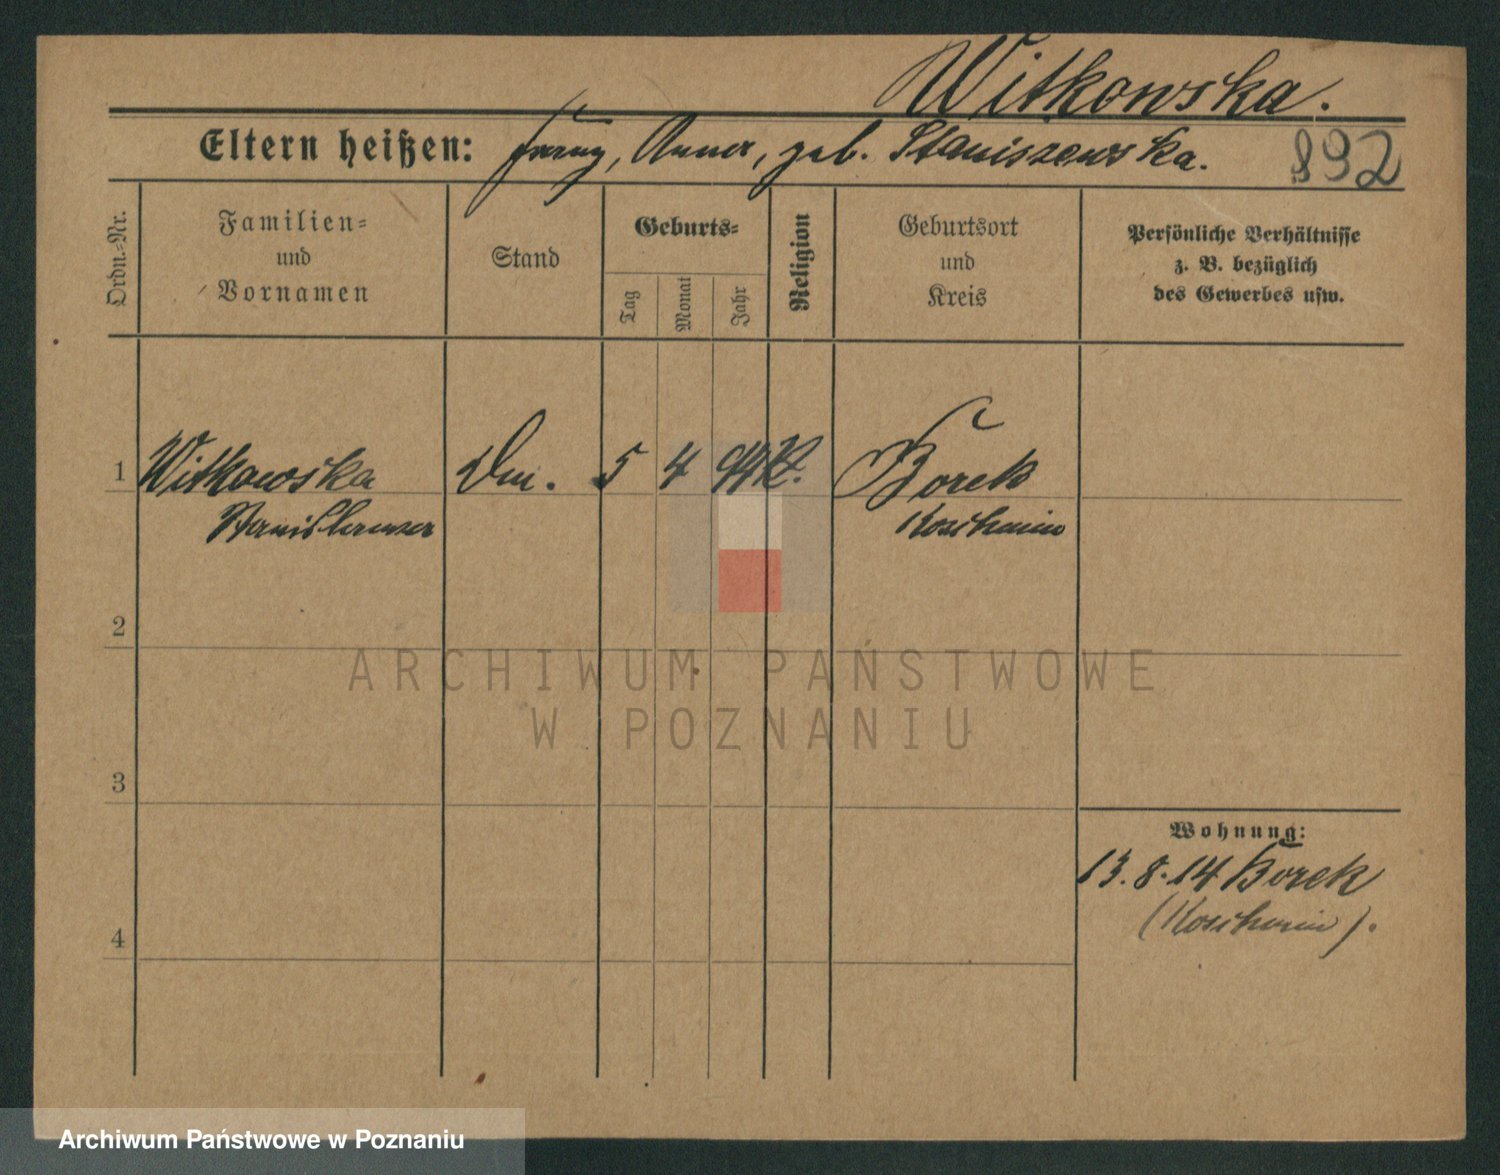 Witkowska.
Eltern heißen: Franz, Anna, geb. Staniszewska.
892
Ordn.-Nr.
Familien-
und
Vornamen
Stand
Geburts-
Tag
Monat
Jahr
Religion
Geburtsort
und
Kreis
Persönliche Verhältnisse
z. B. bezüglich
des Gewerbes usw.
1 Witkowska 5 4 K. Borek
Stanislawa Koschmin
2
3
4
Wohnung:
13.8.14 Borek
(Koschmin).
ARCHIWUM PAŃSTWOWE
W POZNANIU
Archiwum Państwowe w Poznaniu